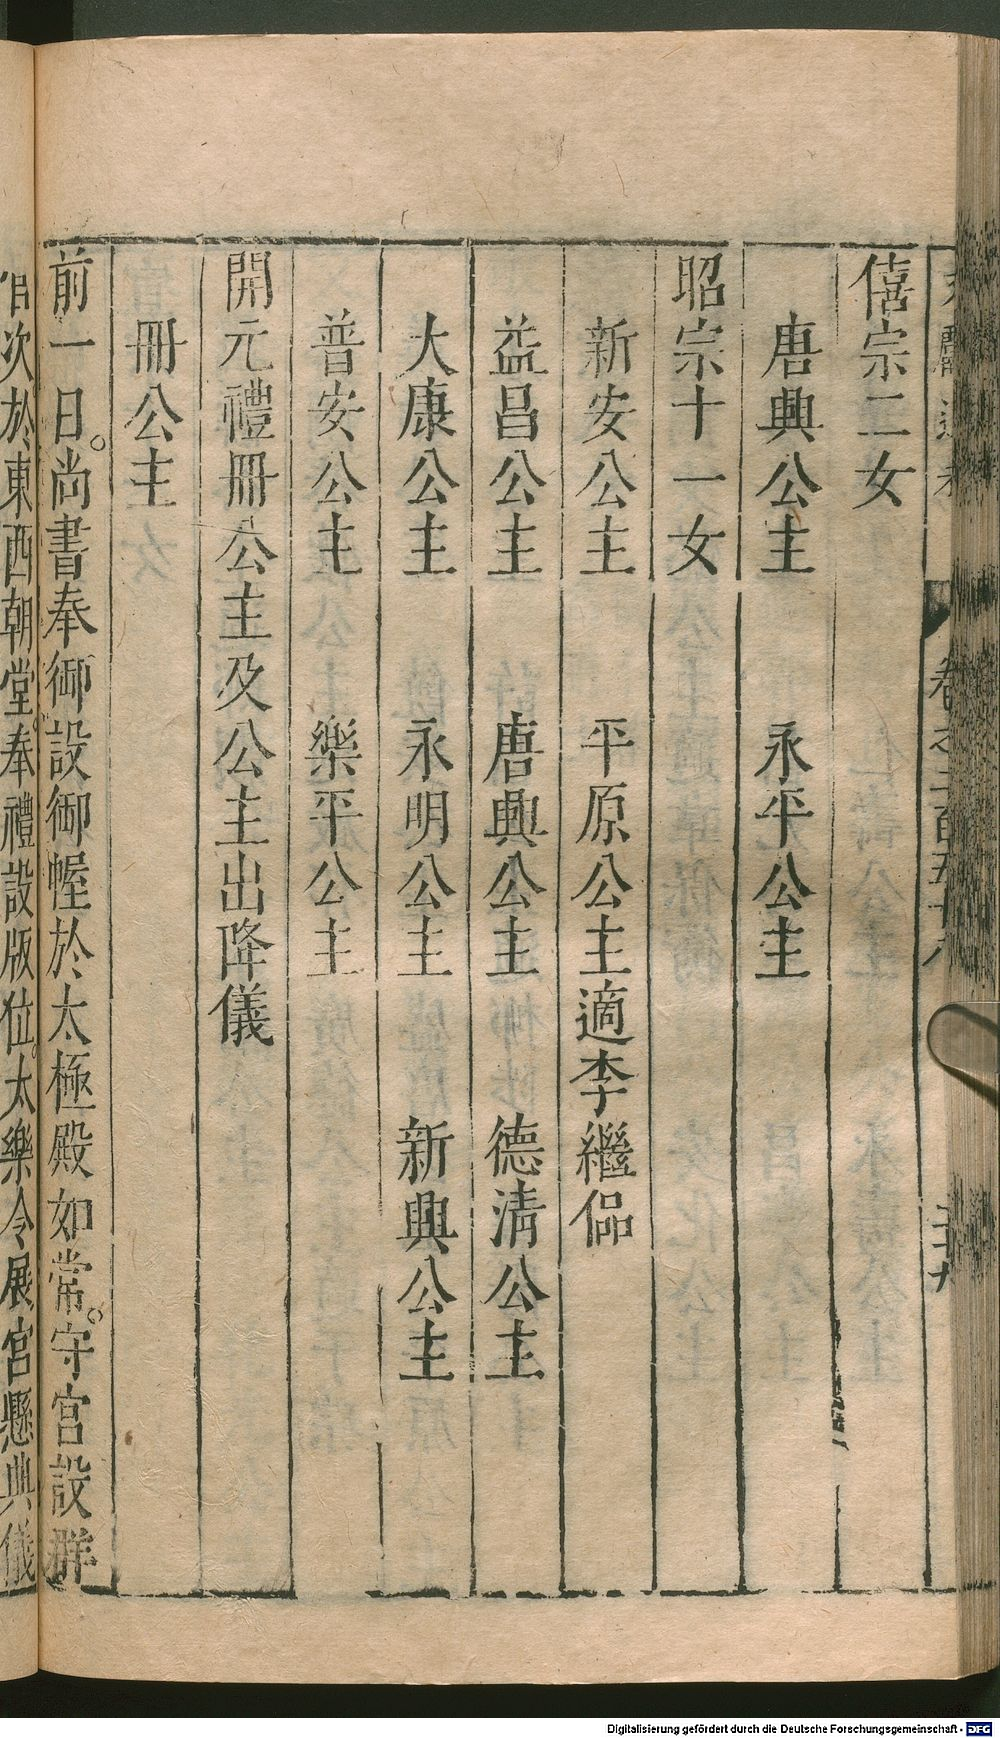 卷之二百五十八
僖宗二女
唐興公主 永平公主
昭宗十一女
新安公主 平原公主適李繼偘
益昌公主 唐興公主 德清公主
大康公主 永明公主 新興公主
普安公主 樂平公主
開元禮冊公主及公主出降儀
冊公主
前一日。尚書奉御設御幄於太極殿如常。守宮設群
官次於東西朝堂。奉禮設版位。太樂令展宮懸典儀
Digitalisierung gefördert durch die Deutsche Forschungsgemeinschaft - DFG